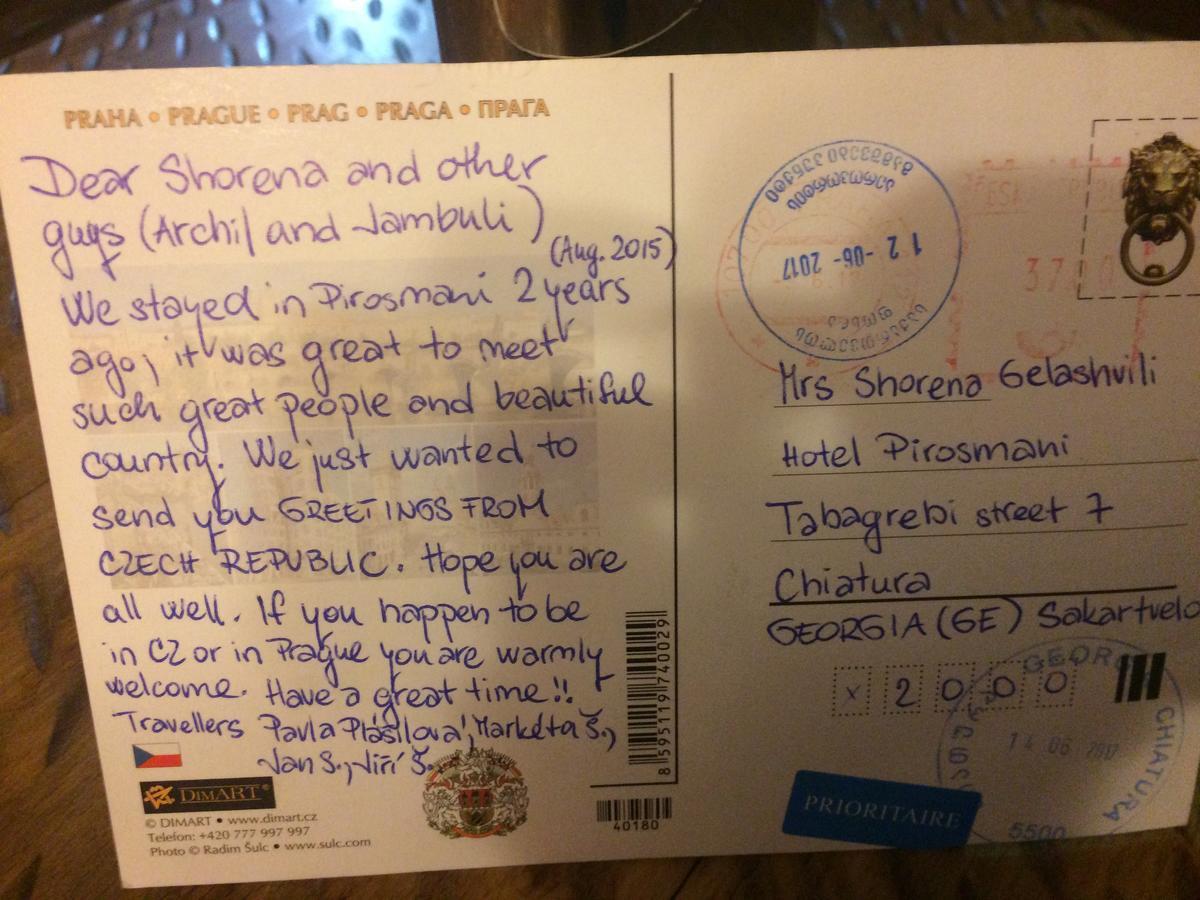 PRAHA • PRAGUE • PRAG • PRAGA • ПРАГА
Dear Shorena and other
guys (Archil and Jambuli)
(Aug. 2015)
We stayed in Pirosmani 2 years
ago, it was great to meet
such great people and beautiful
country. We just wanted to
send you GREETINGS FROM
CZECH REPUBLIC. Hope you are
all well. If you happen to be
in CZ or in Prague you are warmly
welcome. Have a great time!!
Travellers Pavla Plášilová, Markéta Š.,
Jan S., Jiří Š.
DIMART
© DIMART • www.dimart.cz
Telefon: +420 777 997 997
Photo © Radim Šulc • www.sulc.com
8595119740029
40180
12-06-2017
Mrs Shorena Gelashvili
Hotel Pirosmani
Tabagrebi street 7
Chiatura
GEORGIA (GE) Sakartvelo
x 2 0 0 0
14 06 2017
CHIATURA
5500
PRIORITAIRE